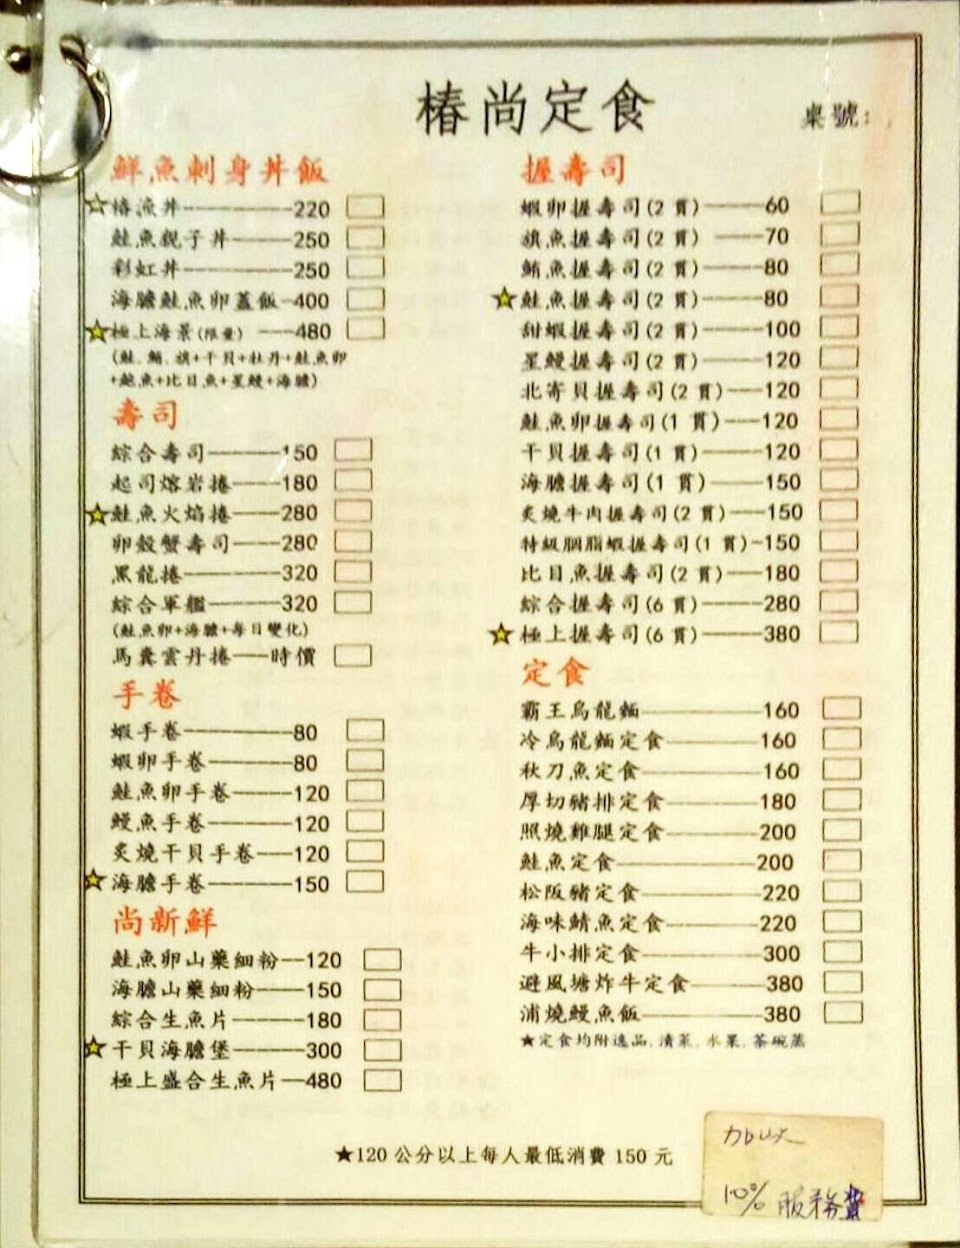 椿尚定食
桌號:
鮮魚刺身丼飯
☆椿漁丼 220
鮭魚親子丼 250
彩虹丼 250
海膽鮭魚卵蓋飯 400
☆極上海景(限量) 480
(鮭.鮪.旗+干貝+牡丹+鮭魚卵
+鮑魚+比目魚+星鰻+海膽)
壽司
綜合壽司 150
起司熔岩捲 180
☆鮭魚火焰捲 280
卵殼蟹壽司 280
黑龍捲 320
綜合軍艦 320
(鮭魚卵+海膽+每日變化)
馬糞雲丹捲 時價
手卷
蝦手卷 80
蝦卵手卷 80
鮭魚卵手卷 120
鰻魚手卷 120
炙燒干貝手卷 120
☆海膽手卷 150
尚新鮮
鮭魚卵山藥細粉 120
海膽山藥細粉 150
綜合生魚片 180
☆干貝海膽堡 300
極上盛合生魚片 480
握壽司
蝦卵握壽司(2 貫) 60
旗魚握壽司(2 貫) 70
鮪魚握壽司(2 貫) 80
☆鮭魚握壽司(2 貫) 80
甜蝦握壽司(2 貫) 100
星鰻握壽司(2 貫) 120
北寄貝握壽司(2 貫) 120
鮭魚卵握壽司(1 貫) 120
干貝握壽司(1 貫) 120
海膽握壽司(1 貫) 150
炙燒牛肉握壽司(2 貫) 150
特級胭脂蝦握壽司(1 貫) 150
比目魚握壽司(2 貫) 180
綜合握壽司(6 貫) 280
☆極上握壽司(6 貫) 380
定食
霸王烏龍麵 160
冷烏龍麵定食 160
秋刀魚定食 160
厚切豬排定食 180
照燒雞腿定食 200
鮭魚定食 200
松阪豬定食 220
海味鯖魚定食 220
牛小排定食 300
避風塘炸牛定食 380
浦燒鰻魚飯 380
★定食均附逸品.漬菜.水果.茶碗蒸
★120 公分以上每人最低消費 150 元
加收
10% 服務費